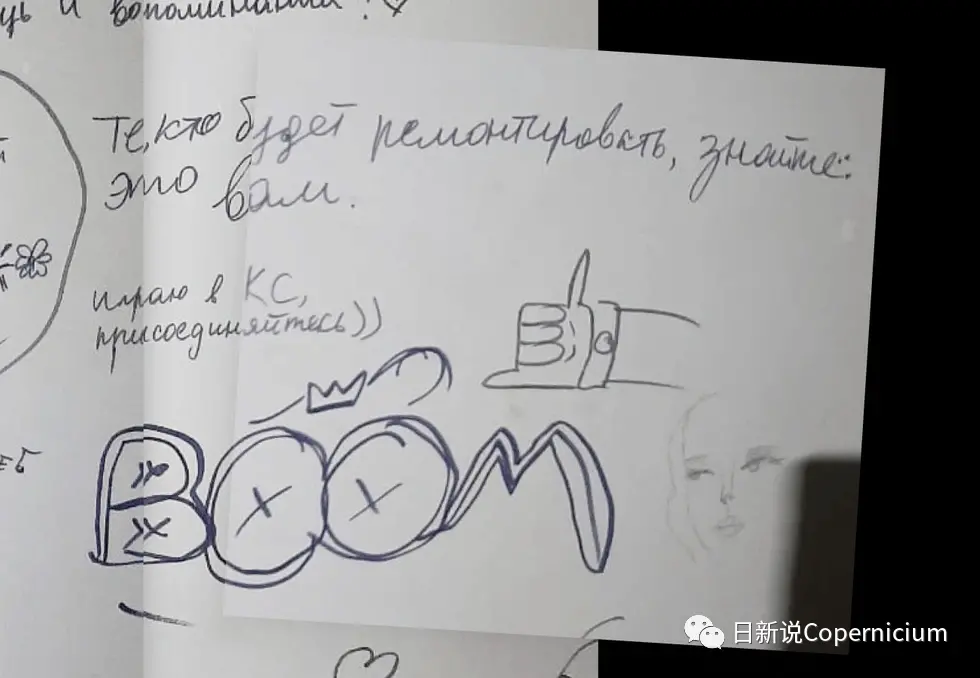 и вопоминания!
Те, кто будет ремонтировать, знайте:
это вам.
играю в КС,
присоединяйтесь))
BOOM
日新说Copernicium